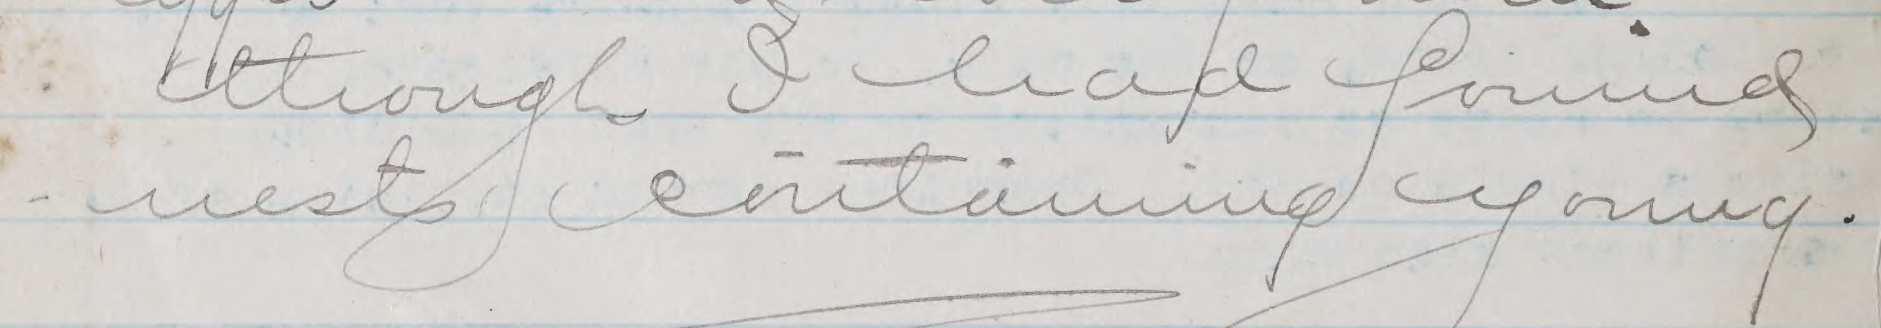 though I had found
nests containing young.